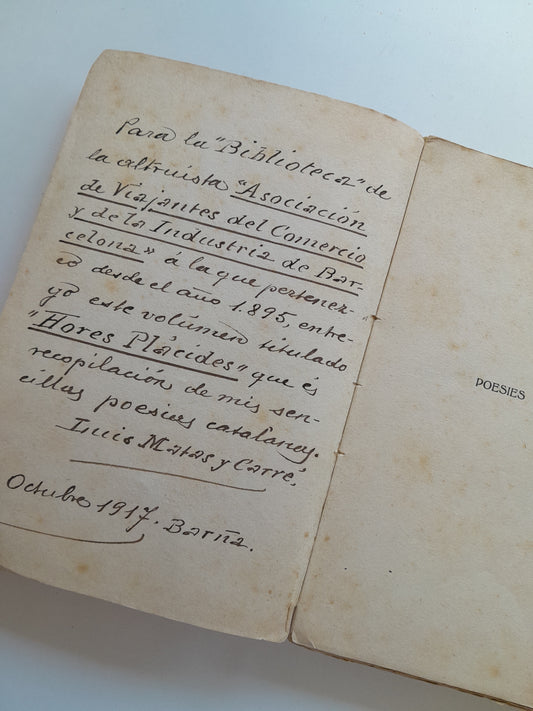 Para la "Biblioteca" de
la altruista "Asociación
de Viajantes del Comercio
y de la Industria de Bar-
celona» á la que pertenez-
co desde el año 1.895, entre-
go este volúmen titulado
"Hores Plácides" que és
recopilación de mis sen-
cillas poesias catalanas.
Luis Matas y Carré.
Octubre 1917. Barña.
POESIES